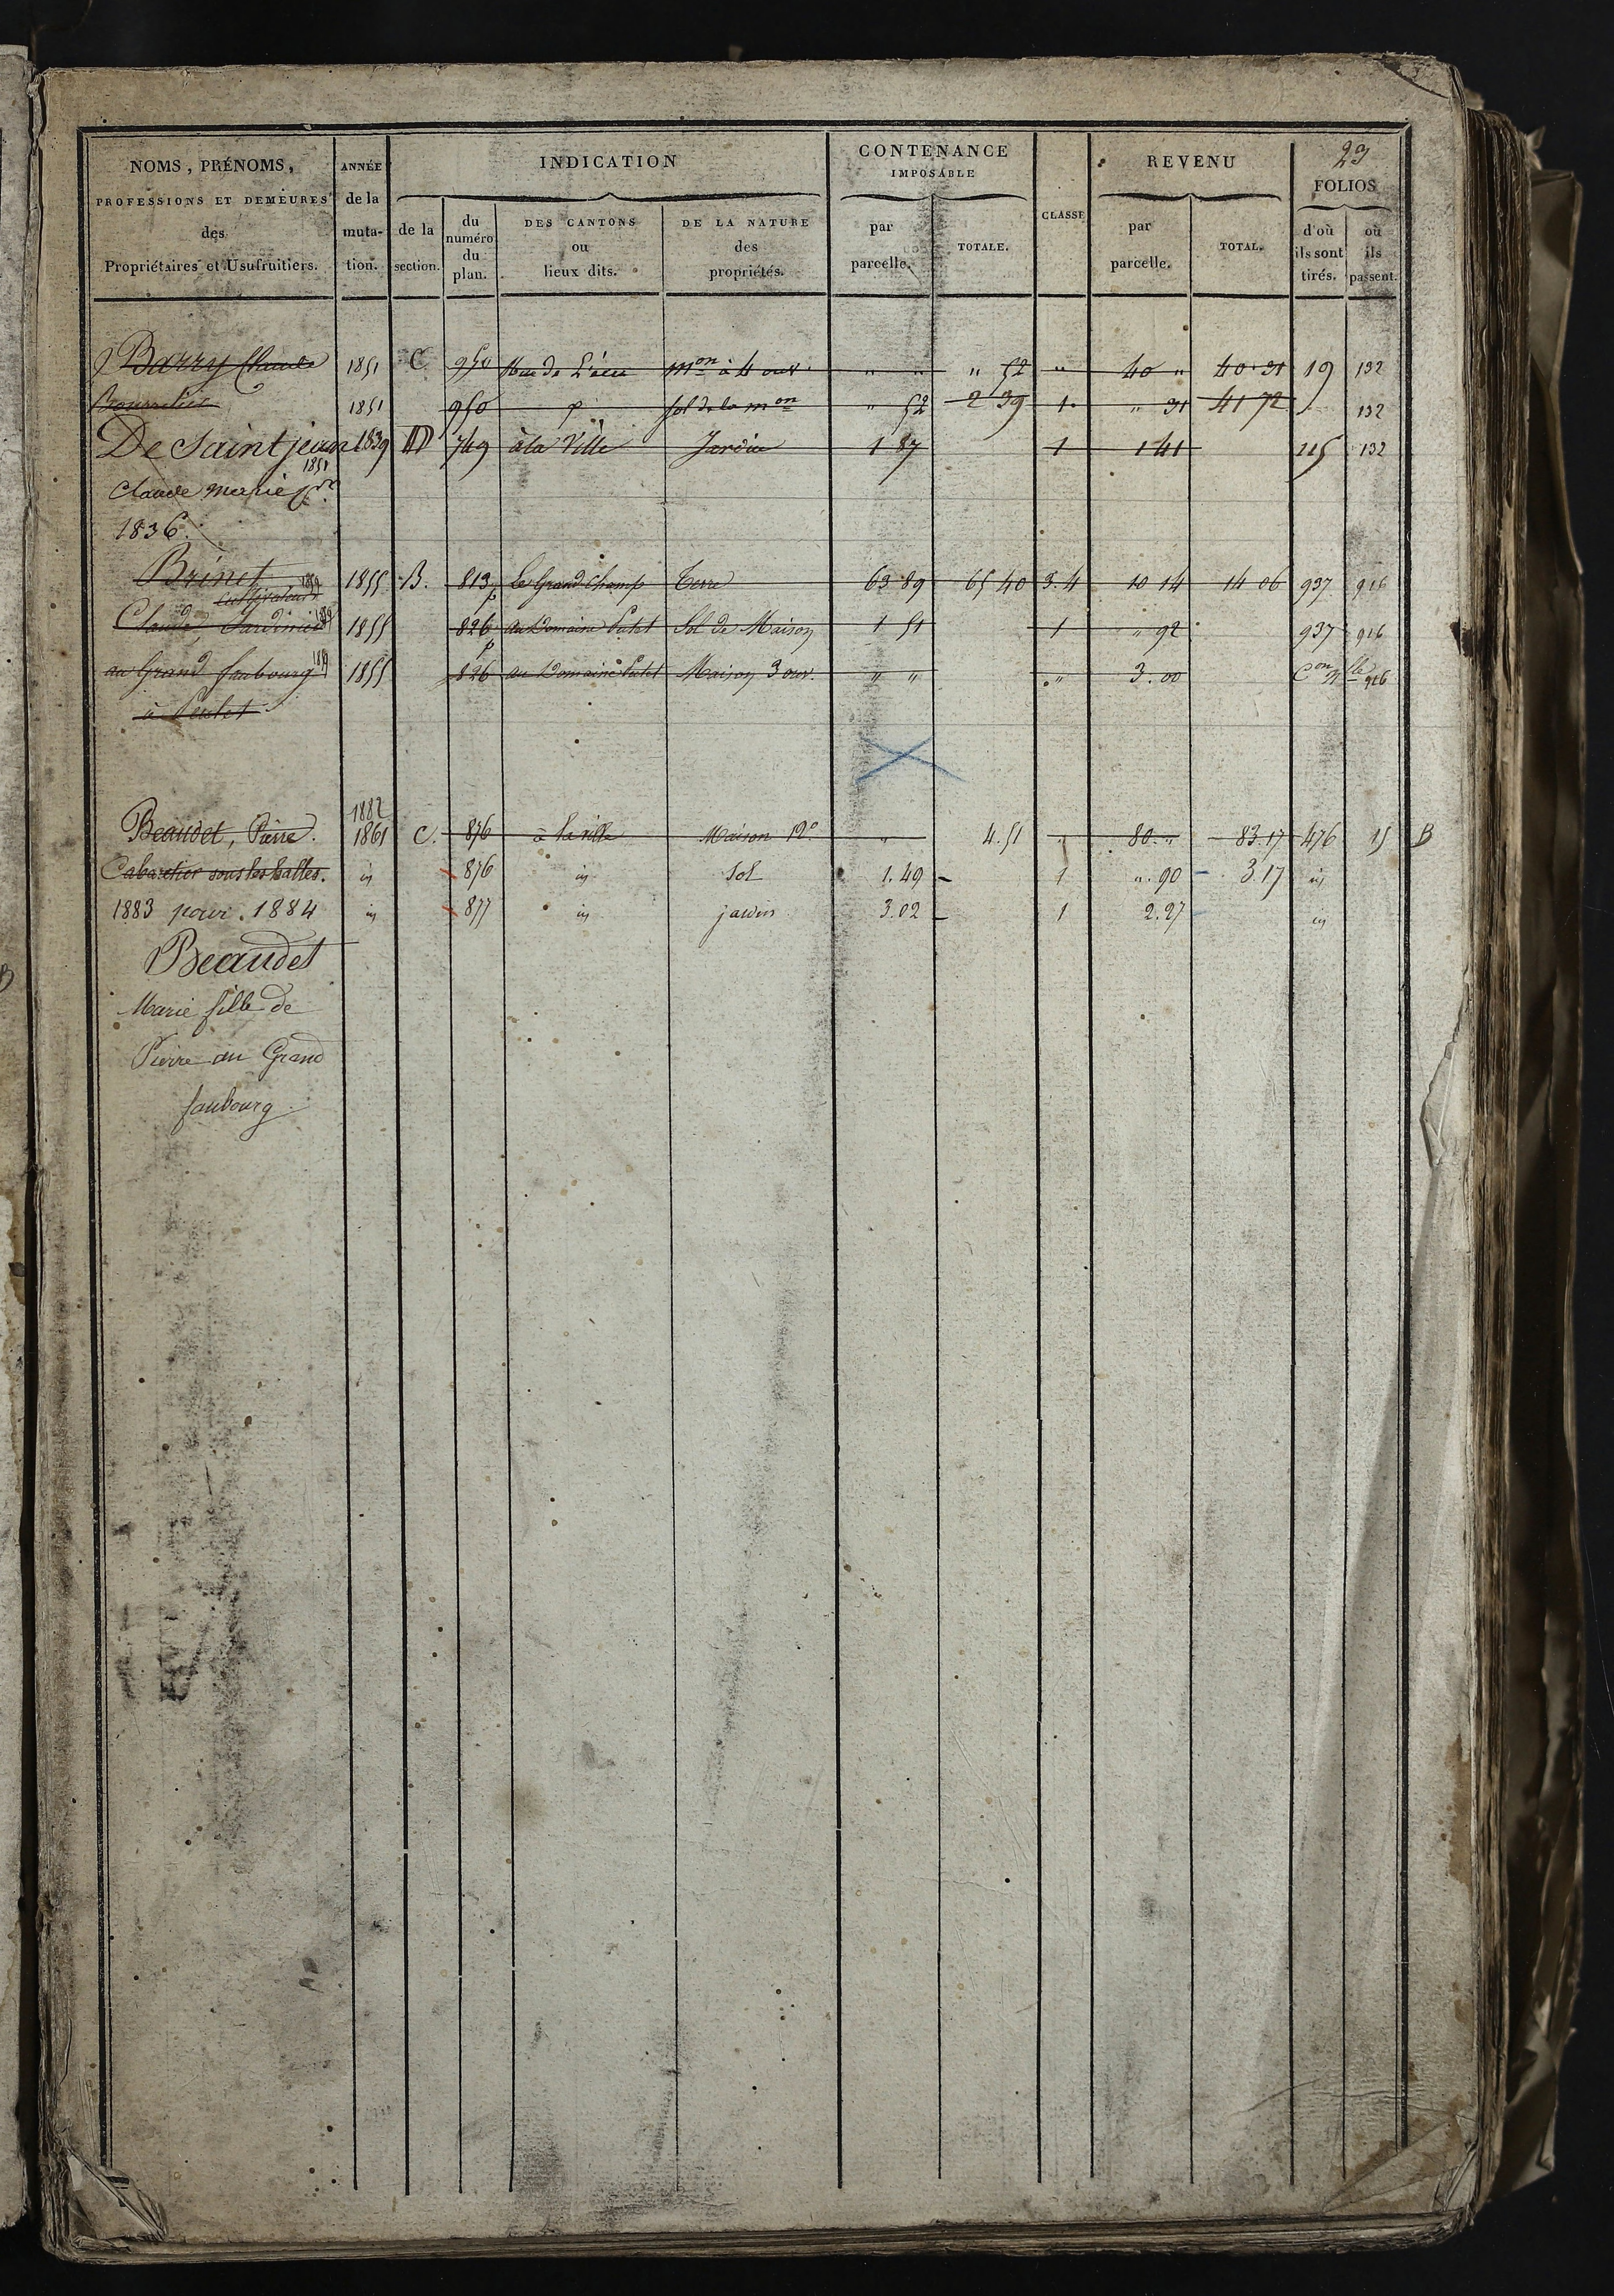 29
NOMS, PRÉNOMS, PROFESSIONS ET DEMEURES des Propriétaires et Usufruitiers.
ANNÉE de la muta- tion.
INDICATION
de la section.
du numéro du plan.
DES CANTONS ou lieux dits.
DE LA NATURE des propriétés.
CONTENANCE IMPOSABLE
par parcelle.
TOTALE.
CLASSE
REVENU
par parcelle.
TOTAL.
FOLIOS
d'où ils sont tirés.
où ils passent.
Barry Claude 1851 C 950 Rue de m^on à 4 ouv. " " " 52 " 40 " 40 31 19 132
1851 950 p sol de la m^on " 52 2 39 1 " 31 41 72 132
De Saint jean 1839 D 749 à la Ville Jardin 1 87 1 1 41 115 132
1851
Claude marie
1836.
Brinet 1855 B. 813 p Le Grand Champ Terre 63 89 65 40 3.4 10 14 14 06 937 916
cultivateur
Claude, Jardinier 1855 826 p au Domaine Sol de Maison 1 51 1 " 92 937 916
au Grand faubourg 1855 826 au Domaine Maison 3 ouv. " " " 3.00 C^on 916
à
1882
Beaudet, Pierre. 1861 C. 876 à la ville Maison 12° " 4.51 " 80 " 83.17 476 15 B
Cabaretier sous les halles. id 876 id Sol 1.49 1 ". 90 3.17 id
1883 pour 1884 id 877 id jardin 3.02 1 2.27 id
Beaudet
Marie fille de
Pierre au Grand
faubourg.
B